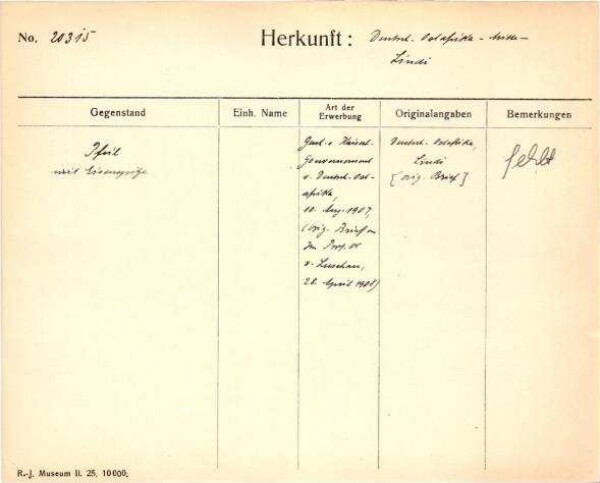 No. 20315
Herkunft: Deutsch. Ostafrika -
Lindi
Gegenstand
Einh. Name
Art der
Erwerbung
Originalangaben
Bemerkungen
Pfeil
mit Eisenspitze
Gesch. v. Kaiserl.
Gouvernement
v. Deutsch-Ost-
afrika,
10. Aug. 1907,
(orig. Brief an
den Prof. Dr
v. Luschan,
28. April 1908)
Deutsch. Ostafrika,
Lindi
[orig. Brief]
fehlt
R.-J. Museum II. 25. 10000.